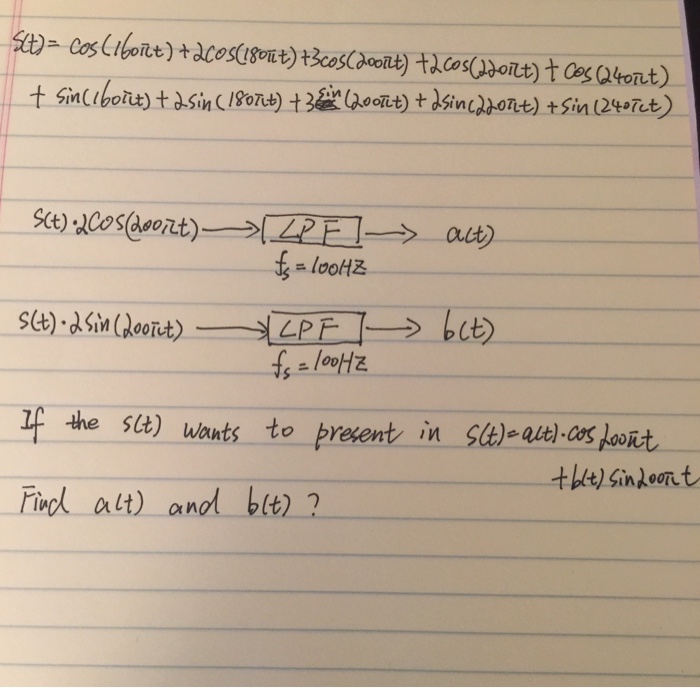 S(t) = cos(160πt) + 2cos(180πt) + 3cos(200πt) + 2cos(220πt) + cos(240πt)
+ sin(160πt) + 2sin(180πt) + 3sin(200πt) + 2sin(220πt) + sin(240πt)
S(t)·2cos(200πt) → LPF → a(t)
fs = 100HZ
s(t)·2sin(200πt) → LPF → b(t)
fs = 100HZ
If the s(t) wants to present in s(t)=a(t)·cos200πt
+b(t)sin200πt
Find a(t) and b(t) ?